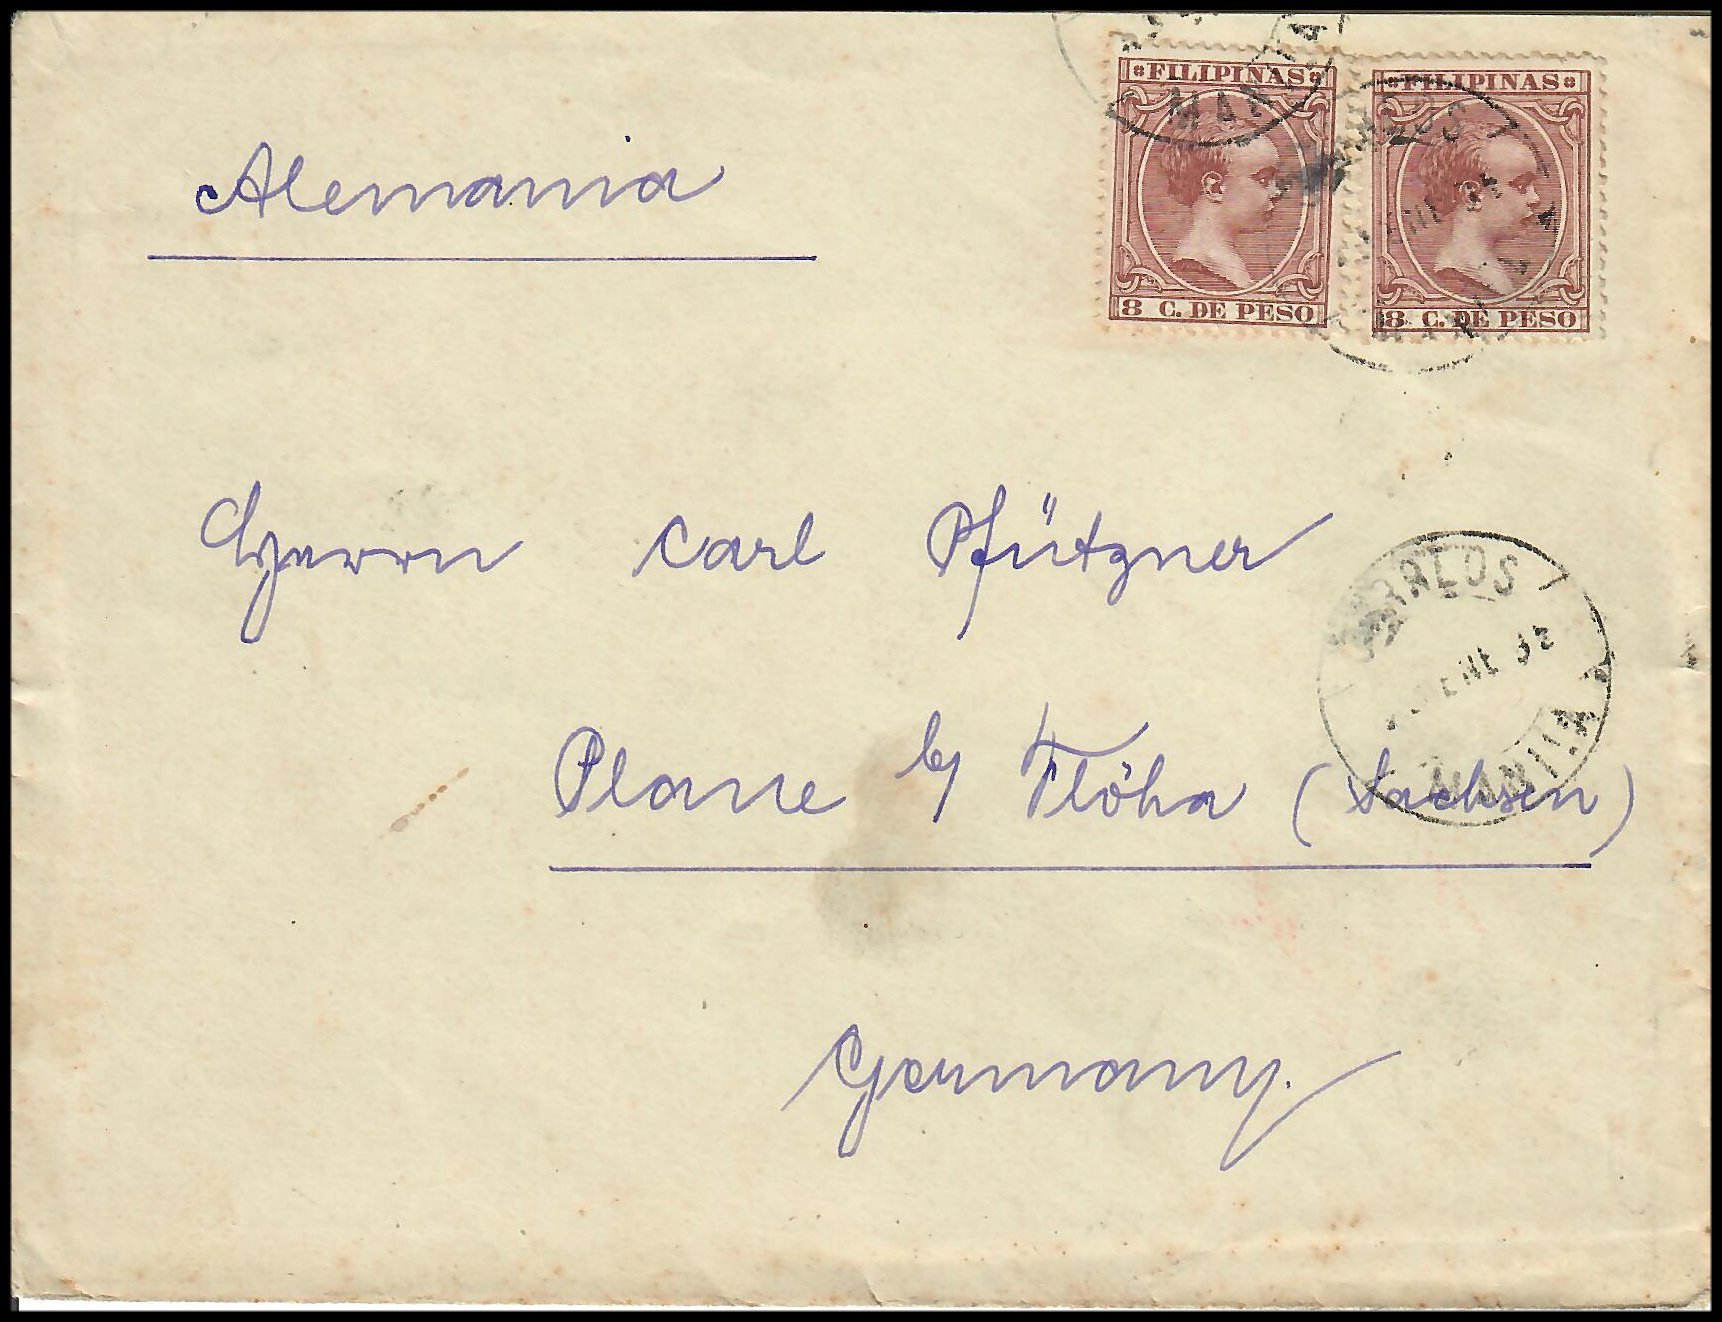 FILIPINAS FILIPINAS
8 C. DE PESO 8 C. DE PESO
Alemania
Herrn Carl Pfützner
CORREOS
ENE
MANILA
Plaue b/ Flöha (Sachsen)
Germany.